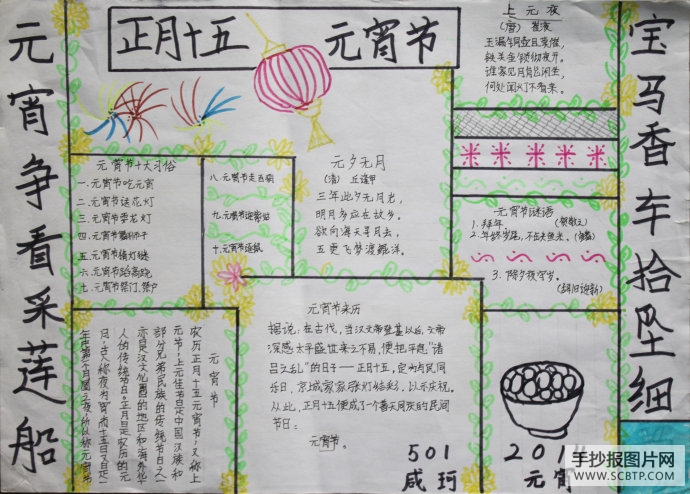 元宵争看采莲船
正月十五 元宵节
上元夜
(唐) 崔液
玉漏铜壶且莫催,
铁关金锁彻夜开。
谁家见月能闲坐,
何处闻灯不看来。
宝马香车拾坠细
元宵节十大习俗
一、元宵节吃元宵
二、元宵节送花灯
三、元宵节耍龙灯
四、元宵节
五、元宵节猜灯谜
六、元宵节踩高跷
七、元宵节祭门、祭户
八、元宵节走百病
九、元宵节迎紫姑
十、元宵节逐鼠
元夕无月
(清) 丘逢甲
三年此夕无月光,
明月多应在故乡。
欲向海天寻月去,
五更飞梦渡鲲洋。
元宵节谜语
1. 拜年。
2. 年终岁尾,不缺鱼米。
3. 除夕夜守岁。
(辞旧迎新)
元宵节
农历正月十五元宵节,又称上
元节,上元佳节是中国汉族和
部分兄弟民族的传统节日之一
亦是汉文化圈的地区和海外华
人的传统节日。正月是农历的元
月,古人称夜为宵,而十五日又是一
年中第一个月圆之夜,所以称元宵节
元宵节来历
据说:在古代,当汉文帝登基以后,文帝
深感太平盛世来之不易,便把平息“诸
吕之乱”的日子——正月十五,定为与民同
乐日,京城家家张灯结彩,以示庆祝。
从此,正月十五便成了一个普天同庆的民间
节日:
元宵节。
501
咸珂
元宵
手抄报图片网
WWW.SCBTP.COM